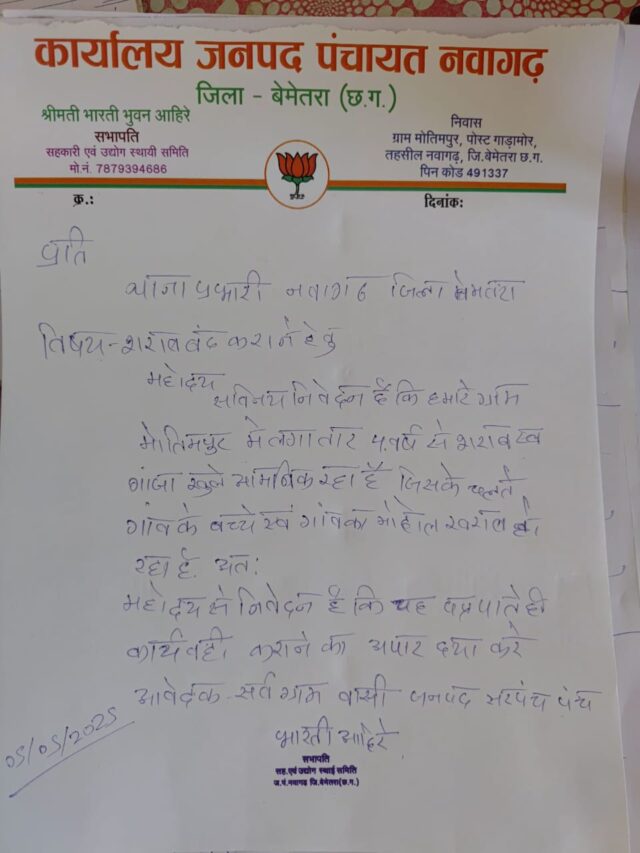 कार्यालय जनपद पंचायत नवागढ़
जिला - बेमेतरा (छ.ग.)
श्रीमती भारती भुवन आहिरे
सभापति
सहकारी एवं उद्योग स्थायी समिति
मो.नं. 7879394686
निवास
ग्राम मोतिमपुर, पोस्ट गाड़ामोर,
तहसील नवागढ़, जि.बेमेतरा छ.ग.
पिन कोड 491337
क्र.:
दिनांक:
प्रति
थाना प्रभारी नवागढ जिला बेमेतरा
विषय - शराब बंद कराने हेतु
महोदय
सविनय निवेदन है कि हमारे ग्राम
मोतिमपुर मे लगातार 5 वर्ष से शराब एवं
गांजा खुले आम बिक रहा है जिसके चलते
गांव के बच्चे एवं गांव का माहोल खराब हो
रहा है. अत:
महोदय से निवेदन है कि यह पत्र पाते ही
कार्यवही कराने का अपार दया करे
आवेदक - सर्व ग्राम वासी जनपद सरपंच पंच
भारती आहिरे
05/05/2025
सभापति
सह.एवं उद्योग स्थाई समिति
ज.पं.नवागढ़ जि.बेमेतरा(छ.ग.)